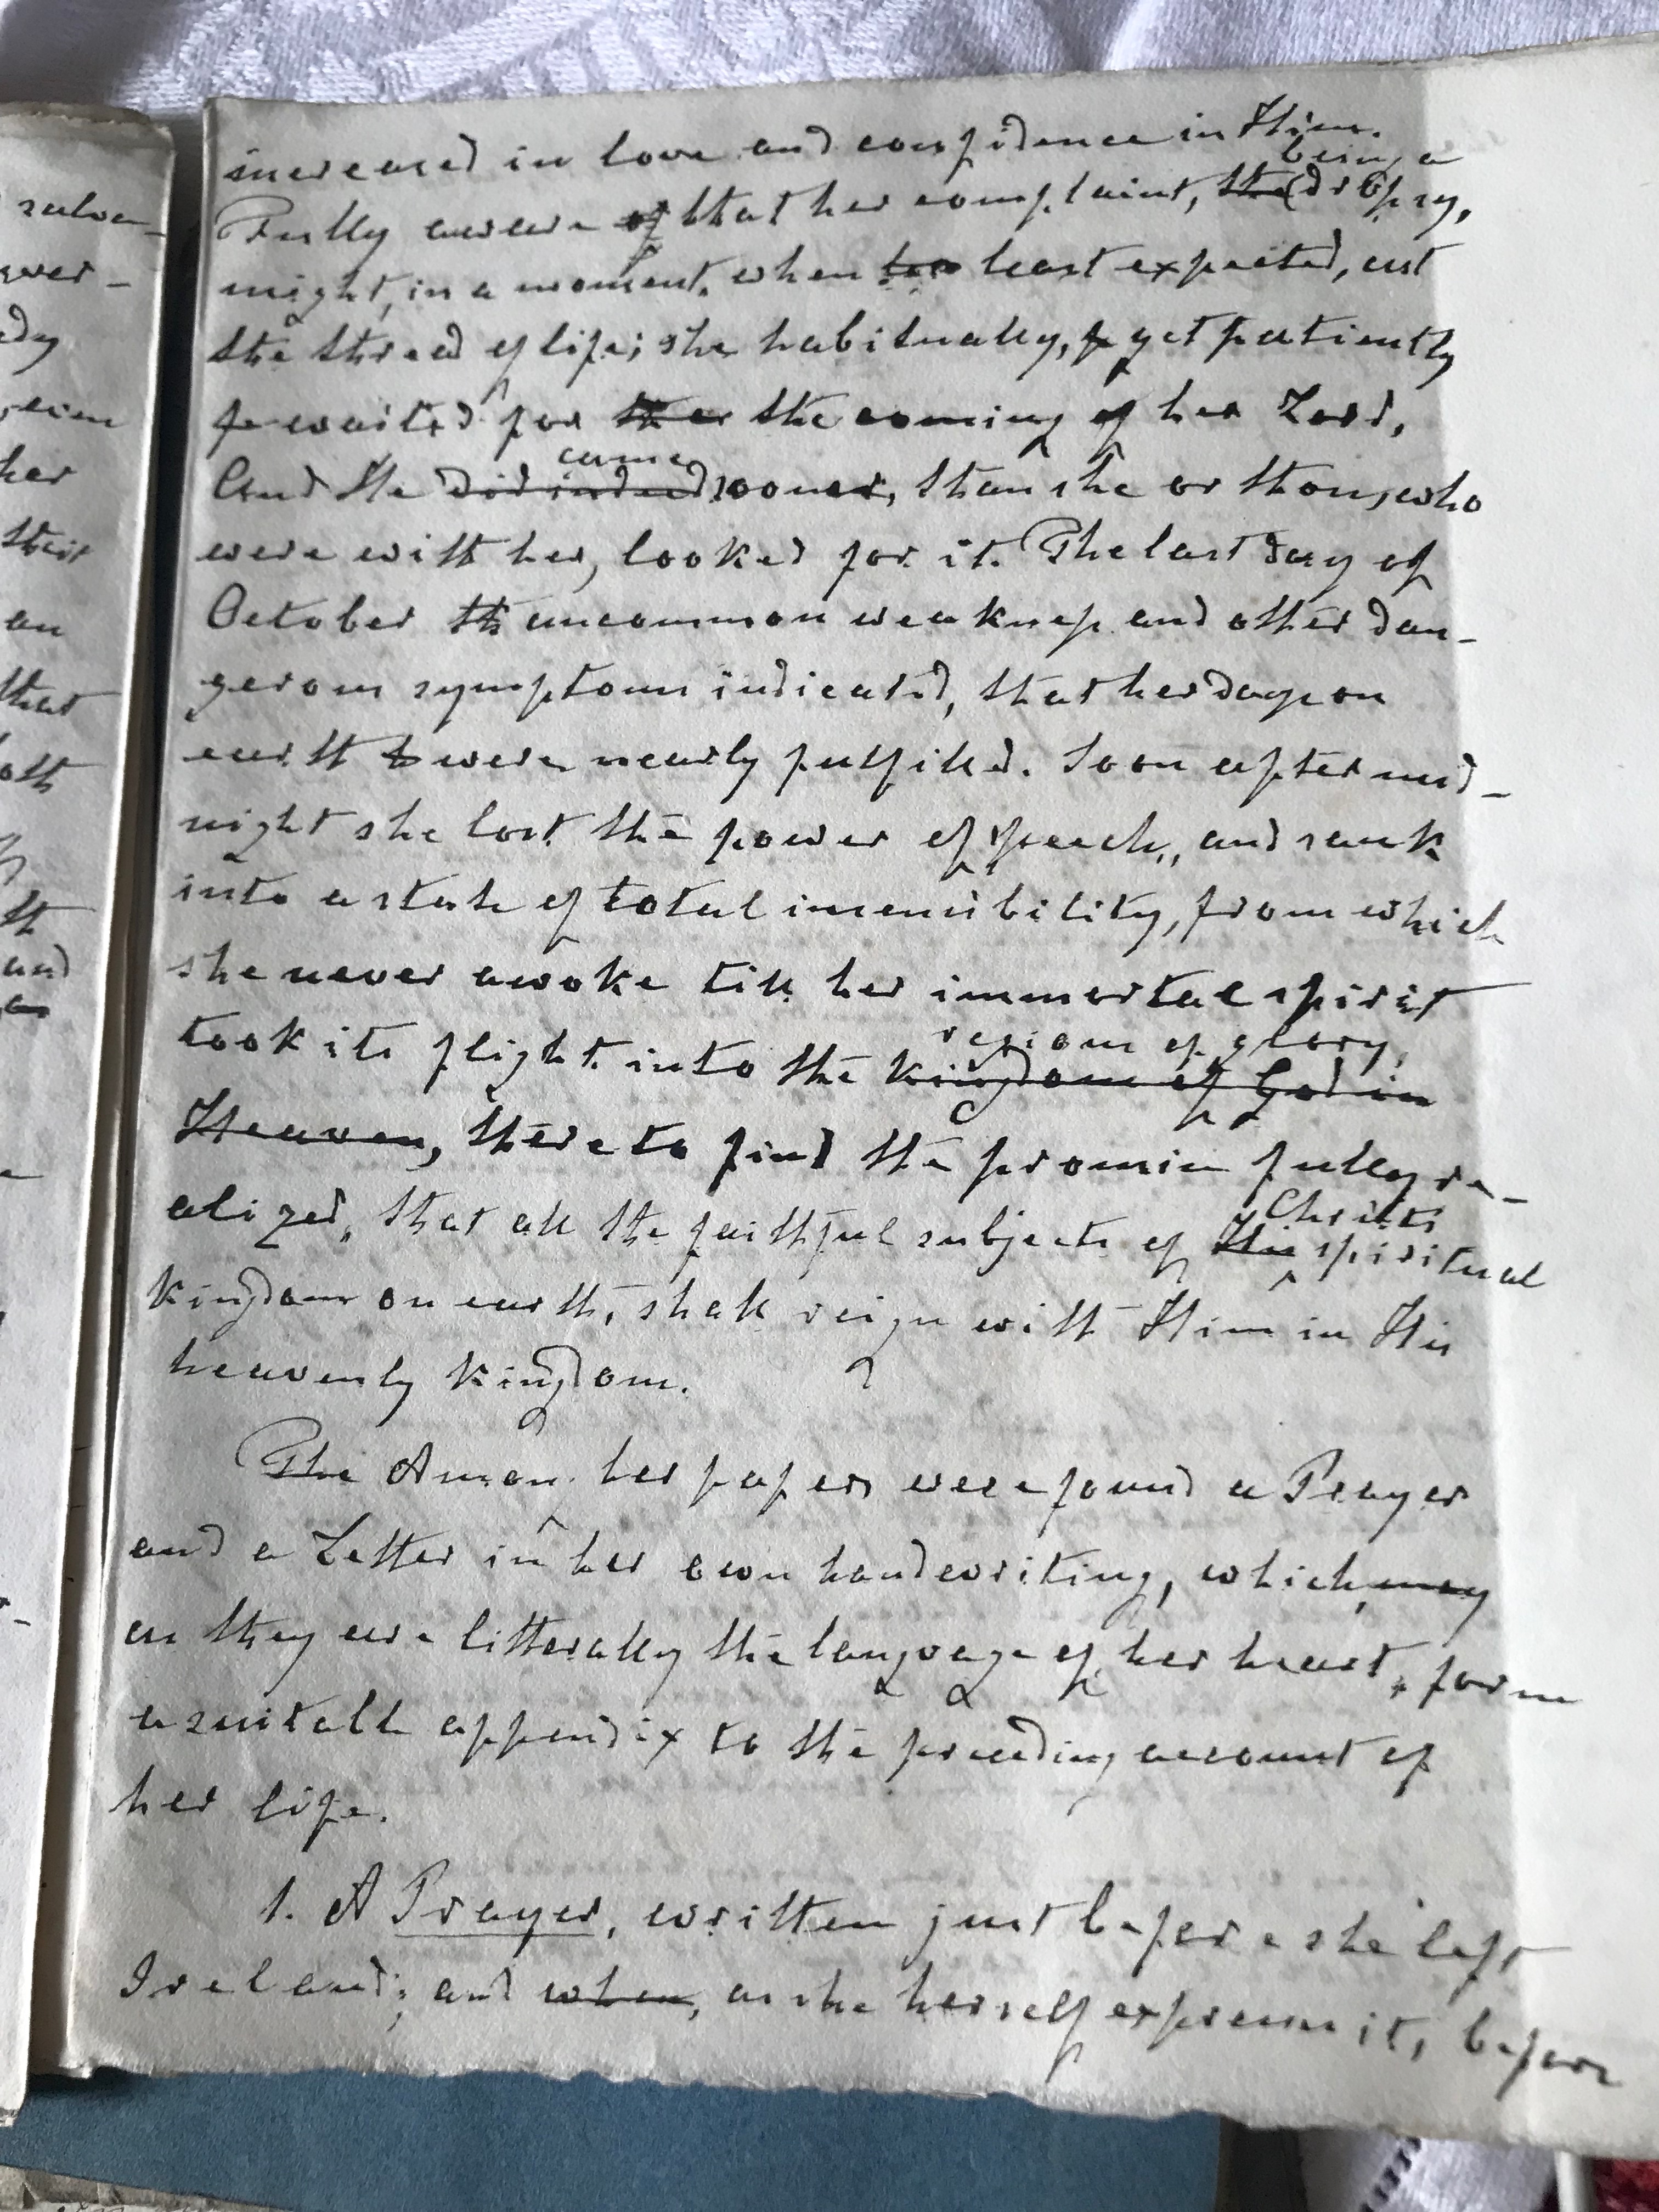 salva-
swer-
edy
her
their
an
that
oth
th
and
increased in love and confidence in Him.
being a
Fully aware of that her complaint, the (dropsy,
might, in a moment, when her least expected, cut
the thread of life; she habitually, yet patiently
waited for the coming of her Lord,
came
And He did indeed sooner, than she or those, who
were with her, looked for it. The last day of
October th uncommon weakness and other dan-
gerous symptoms indicated, that her days on
earth b were nearly fulfilled. Soon after mid-
night she lost the power of speech, and sank
into a state of total insensibility, from which
she never awoke till her immortal spirit
regions of glory,
took its flight into the kingdom of God in
Heaven, there to find the promise fully re-
alized, that all the faithful subjects of His spiritual
Christ's
kingdom on earth, shall reign with Him in His
heavenly kingdom.
The Among her papers were found a Prayer
and a Letter in her own handwriting, which, may
as they are litterally the language of her heart, form
a suitable appendix to the preceding account of
her life.
1. A Prayer, written just before she left
Ireland; and when, as she herself expresses it, before